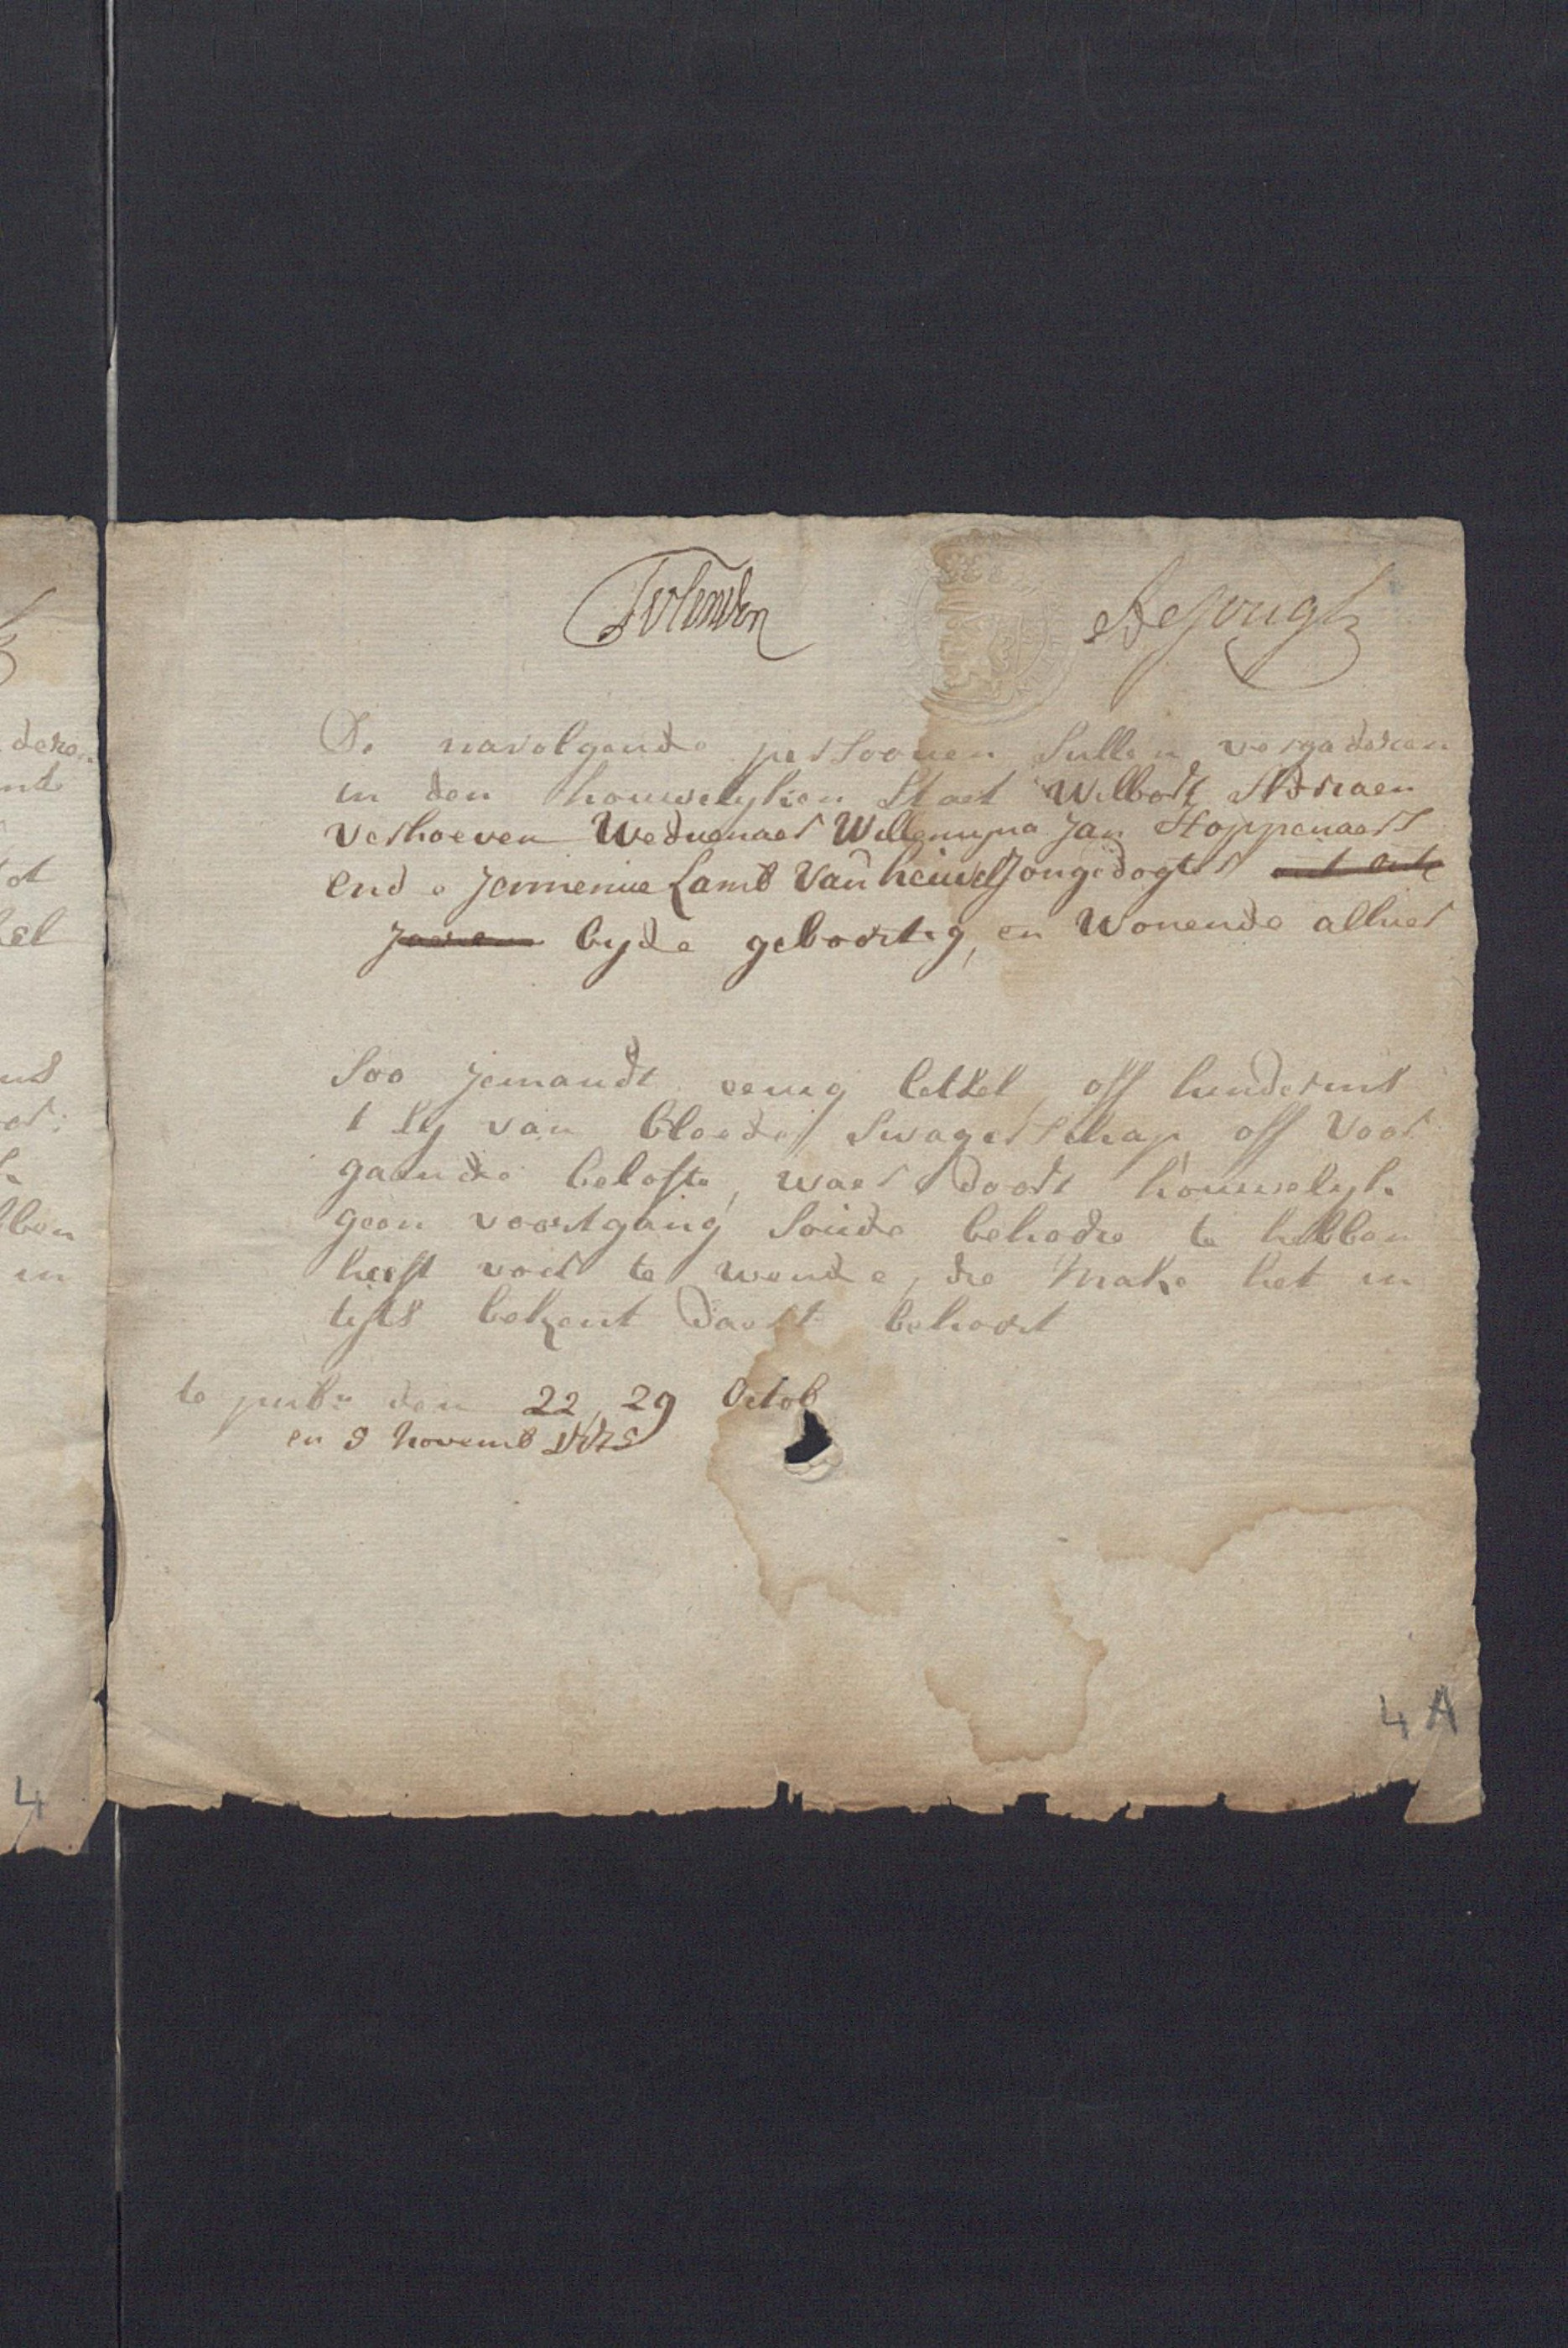 De navolgende perssoonen Sullen vergaderen
in den houwelyken Staet Willbort Adriaen
Verhoeven Weduenaer Willemyna Jan Stoppenaers
ende Jennemie Lamb Van heuvel Jongedogter
byde geboortig, en Wonende alhier
Soo jemandt eenig letsel off hindernis
t sy van bloede, Swagerschap off voor
gaende belofte, waer door houwelyk
geen voortgang Soude behoore te hebben
heeft voor te wende, die make het in
tyts bekent daert behoort
te pub: den 22, 29 Octob
en 5 Novemb
4 A
4